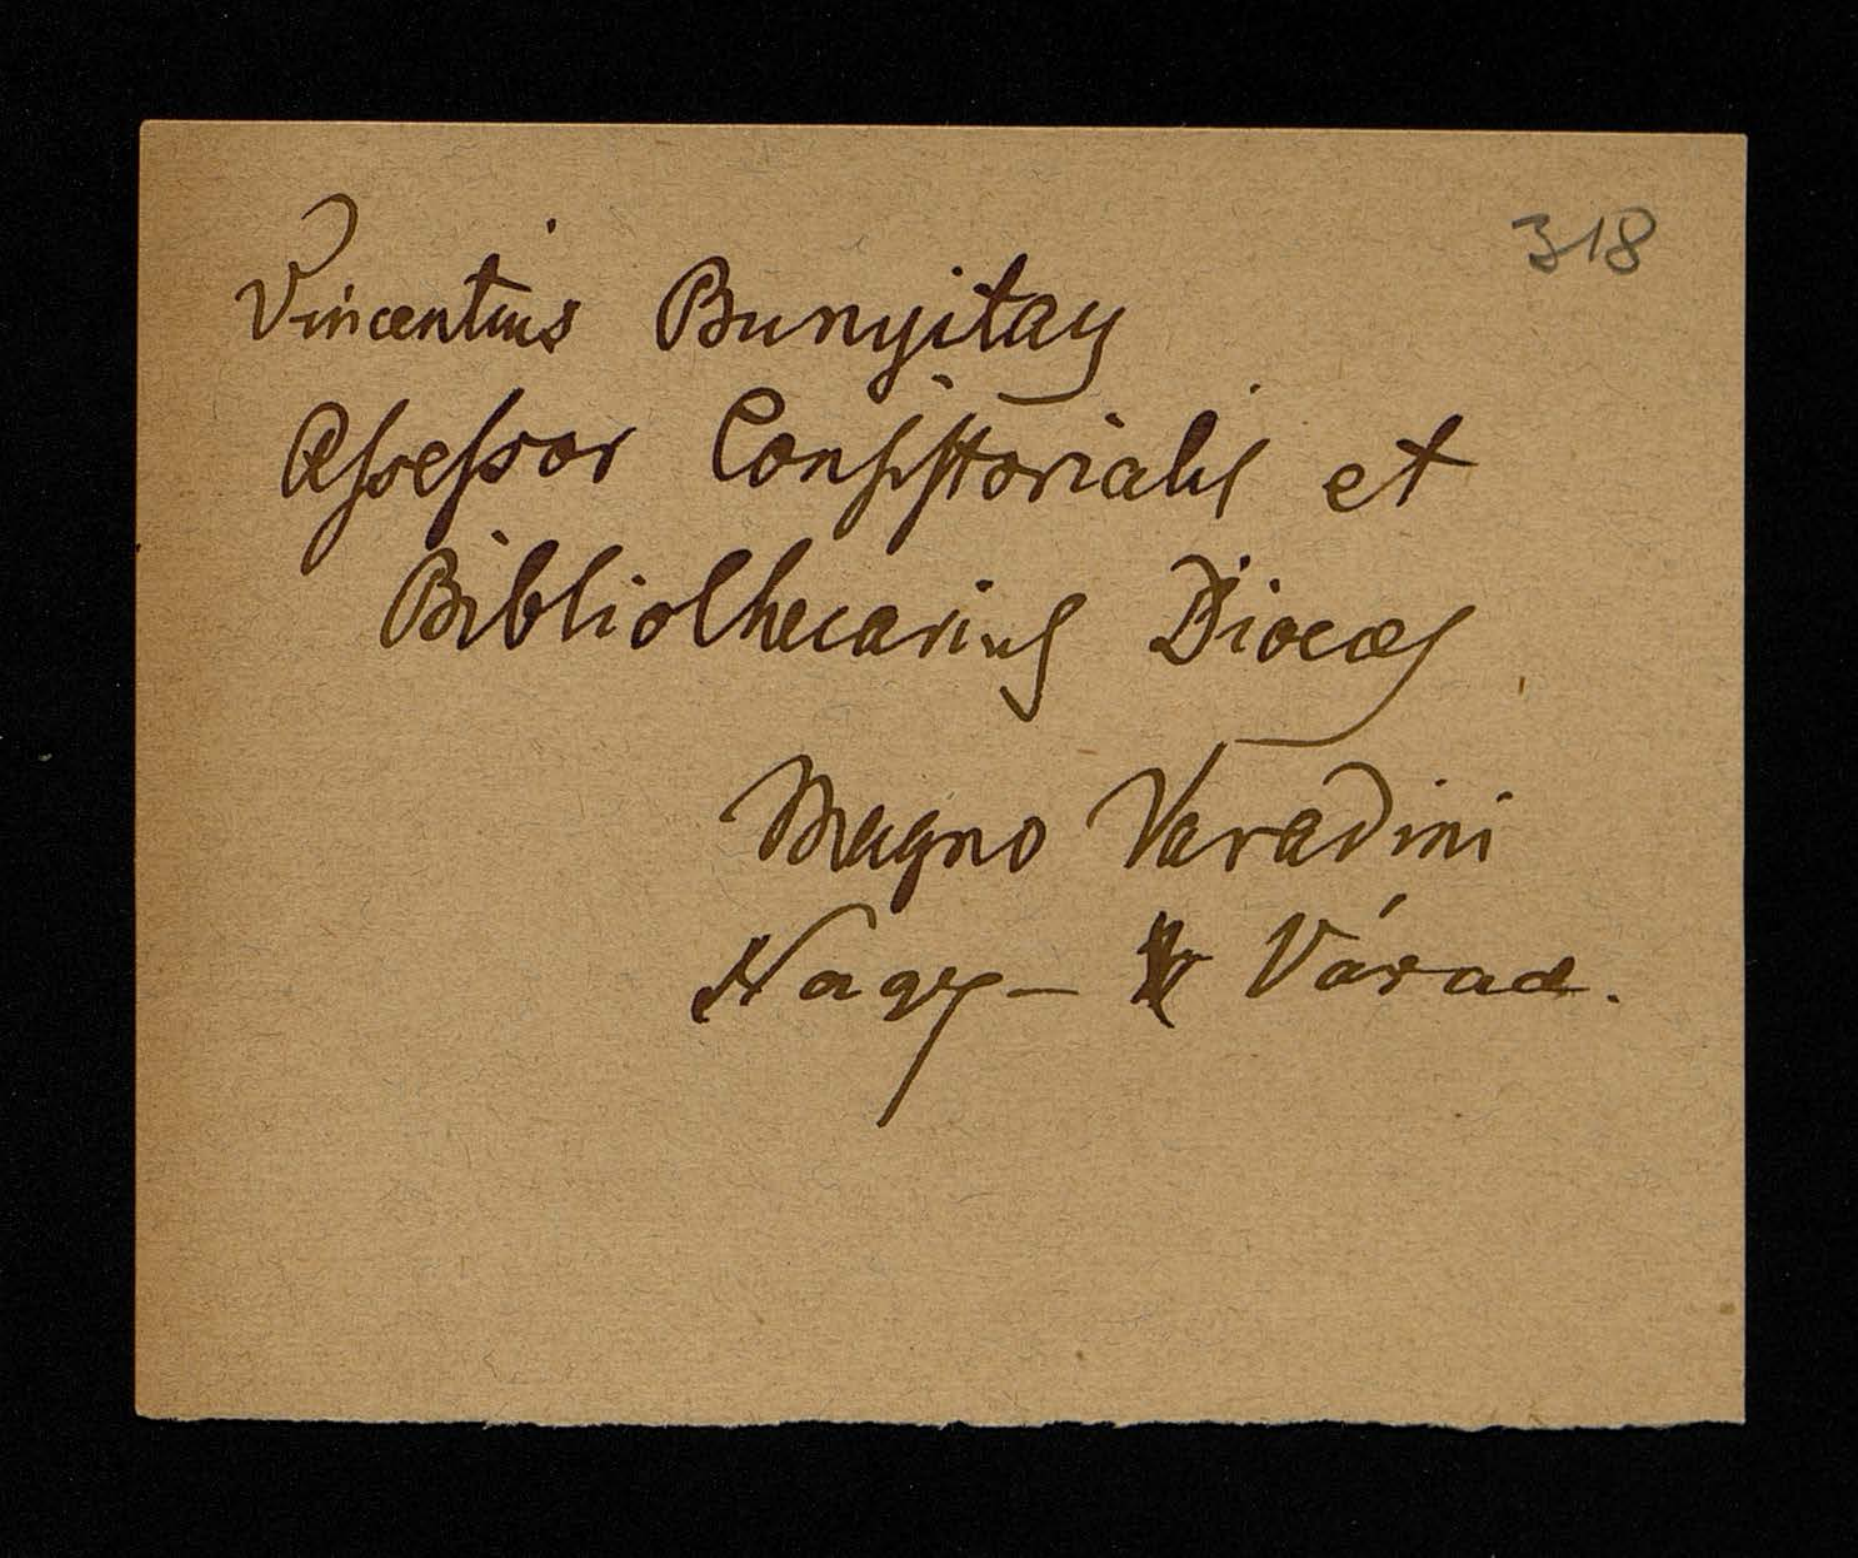 318
Vincentius Bunyitay
Assessor Consistorialis et
Bibliothecarius Dioces
Magno Varadini
Nagy- Várad.